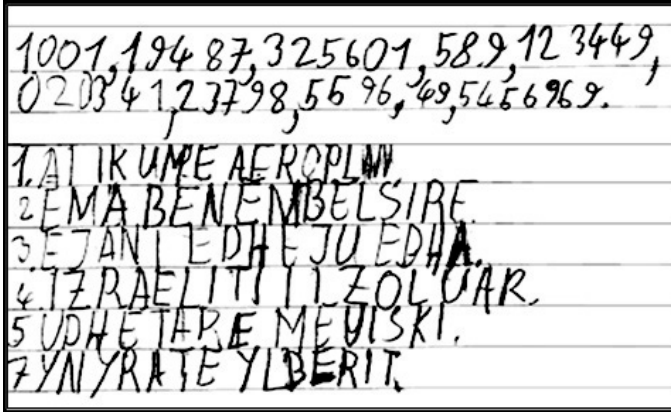 1001,19487,325601,58.9,12 3449,
020341,23798,5596,49,5456969.
1.ATI IKUME AEROPLAN.
2 EMA BEN ËMBELSIRE.
3.EJANI EDHE JU EDHA.
4.IZRAELITI I IZOLUAR.
5 UDHETAR E MEUISKI.
7 YNYRATE YLBERIT.